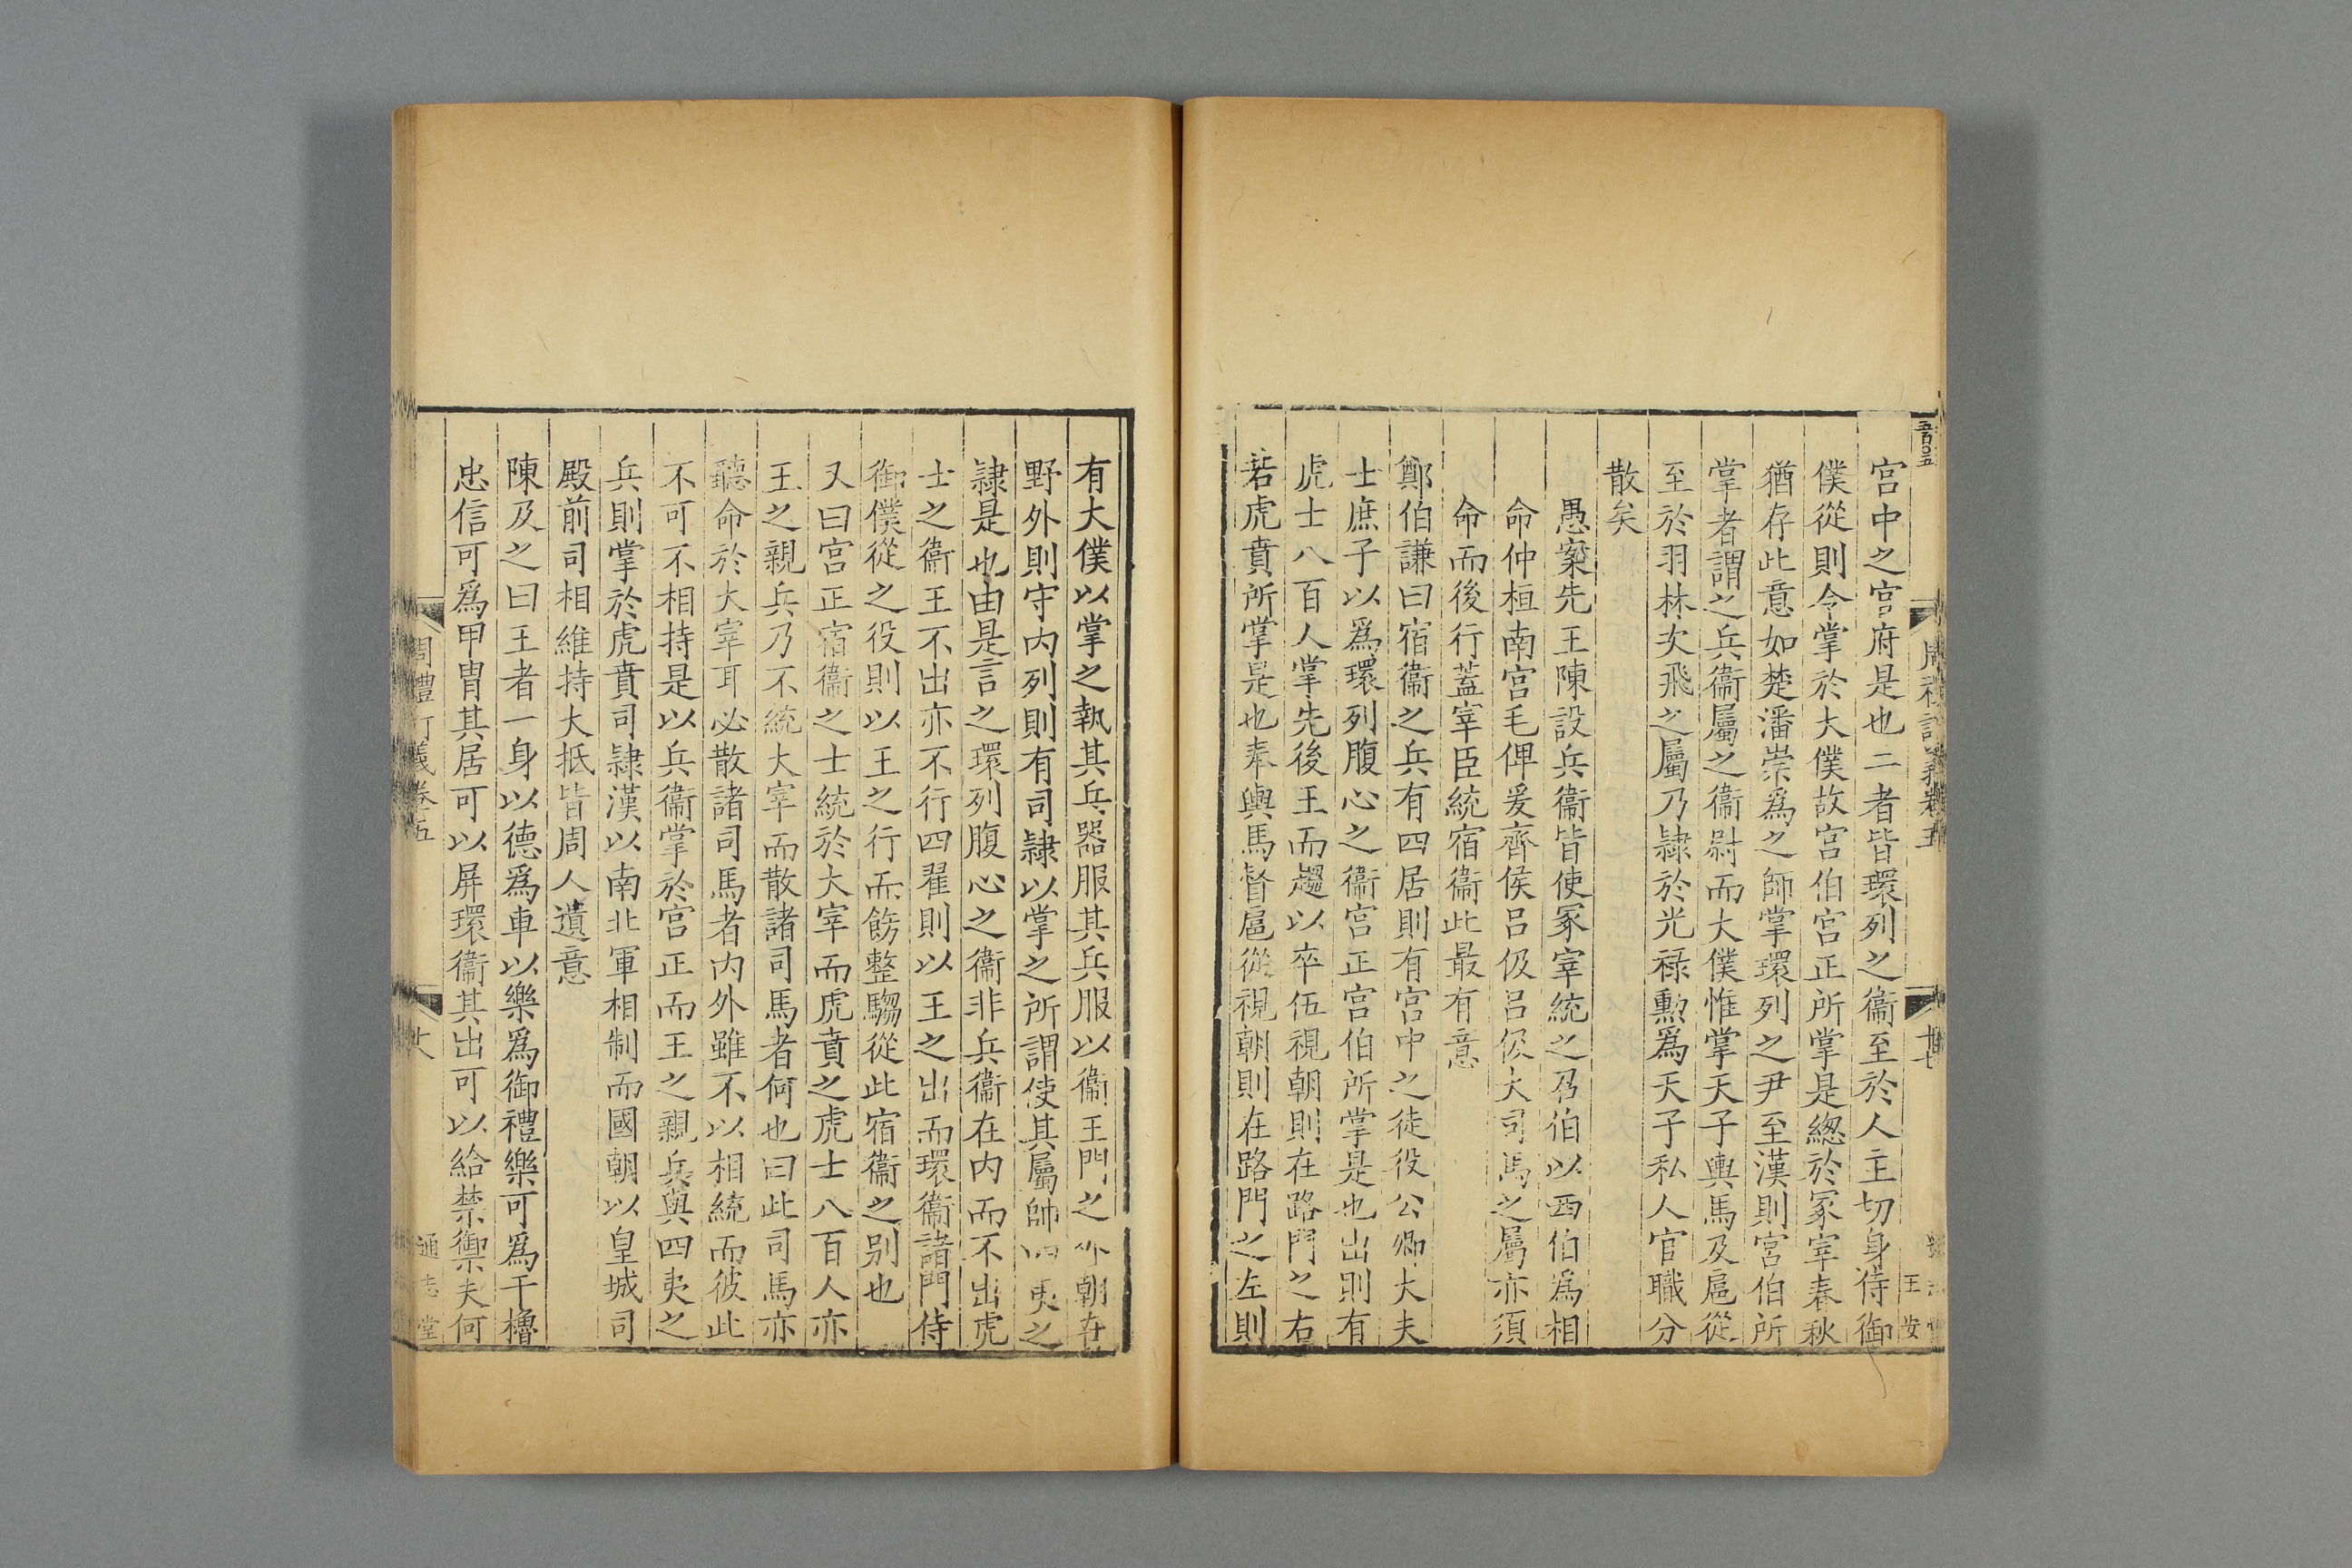 宫中之宫府是也二者皆環列之衞至於人主切身侍御
僕從則令掌於大僕故宫伯宫正所掌是緫於冢宰春秋
猶存此意如楚潘崇爲之師掌環列之尹至漢則宫伯所
掌者謂之兵衞屬之衞尉而大僕惟掌天子輿馬及扈從
至於羽林次飛之屬乃隷於光禄勲爲天子私人官職分
散矣
愚案先王陳設兵衞皆使冢宰統之召伯以西伯爲相
命仲桓南宫毛俾爰齊侯吕伋吕伋大司馬之屬亦須
命而後行蓋宰臣統宿衞此最有意
鄭伯謙曰宿衞之兵有四居則有宫中之徒役公卿大夫
士庶子以爲環列腹心之衞宫正宫伯所掌是也出則有
虎士八百人掌先後王而趨以卒伍視朝則在路門之右
若虎賁所掌是也奉輿馬督扈從視朝則在路門之左則
有大僕以掌之執其兵器服其兵服以衞王門之外朝在
野外則守内列則有司隷以掌之所謂使其屬帥四夷之
隷是也由是言之環列腹心之衞非兵衞在内而不出虎
士之衞王不出亦不行四翟則以王之出而環衞諸門侍
御僕從之役則以王之行而飭整騶從此宿衞之别也
又曰宫正宿衞之士統於大宰而虎賁之虎士八百人亦
王之親兵乃不統大宰而散諸司馬者何也曰此司馬亦
聽命於大宰耳必散諸司馬者内外雖不以相統而彼此
不可不相持是以兵衞掌於宫正而王之親兵與四夷之
兵則掌於虎賁司隷漢以南北軍相制而國朝以皇城司
殿前司相維持大抵皆周人遺意
陳及之曰王者一身以德爲車以樂爲御禮樂可爲干櫓
忠信可爲甲冑其居可以屏環衞其出可以給禁禦夫何
周禮訂義卷五
通志堂